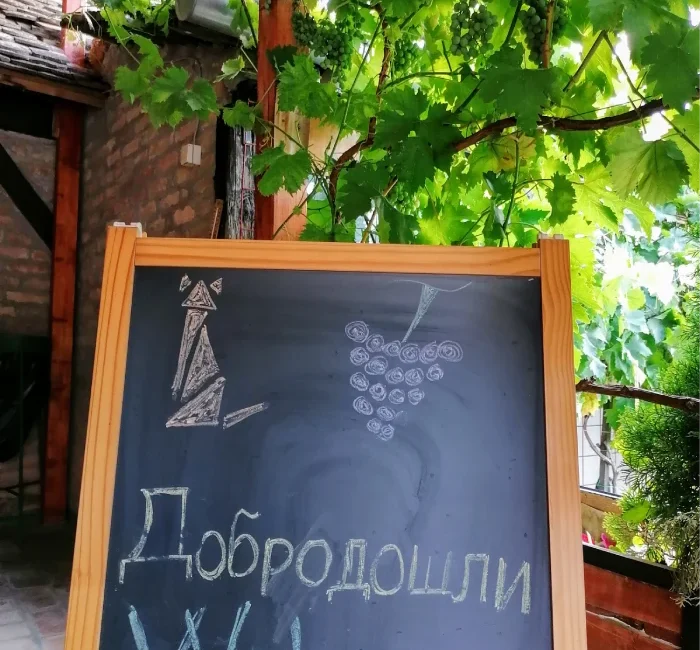 Добродошли